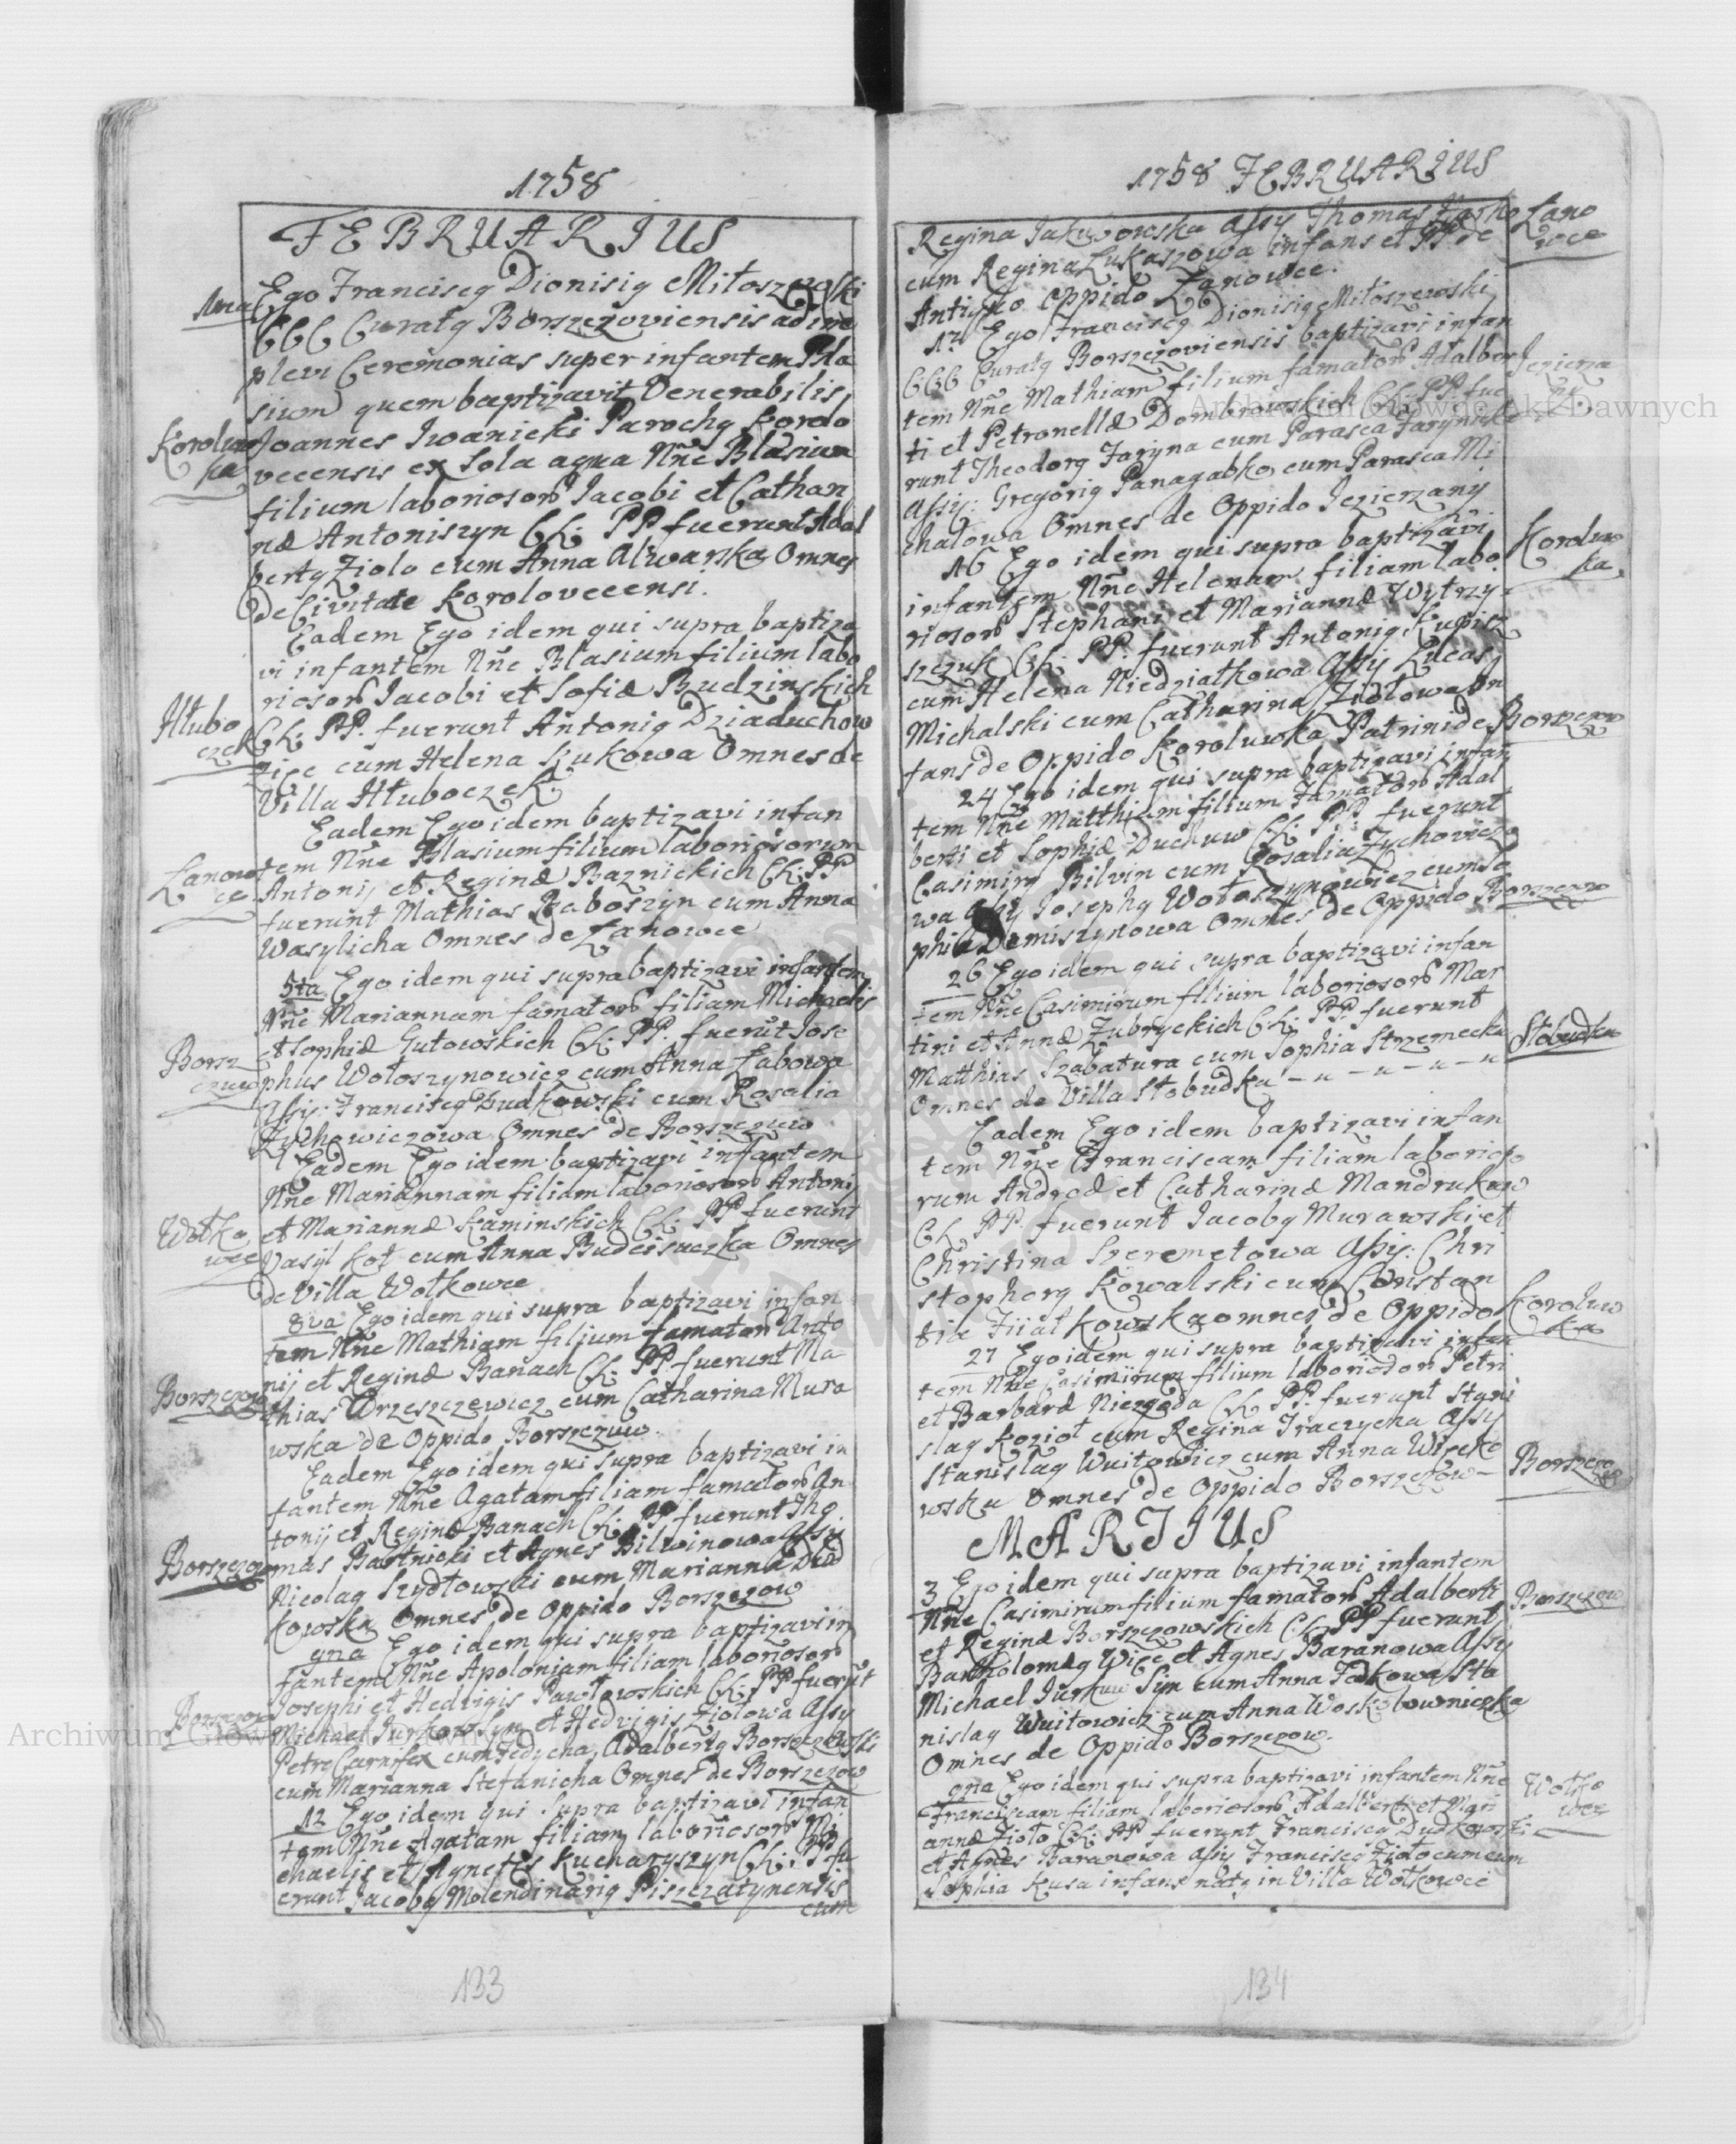 1758
FEBRUARIUS
1ma Ego Franciscq Dionisiq Miłoszewski
CCC Curatq Borszczoviensis adim
plevi Ceremonias super infantem Bla
sium quem baptizavit Venerabilis
Joannes Iwanicki Parochq Korolo
Koroluw
ka
vecensis ex sola aqua Nne Blasium
filium laboriosor Jacobi et Cathari
næ Antoniszyn CL: PP fuerunt Adal
bertq Zioło cum Anna Omnes
de Civitate Korolovecensi.
Eadem Ego idem qui supra baptiza
vi infantem Nne Blasium filium labo
riosor Jacobi et Sofiæ Budzinskich
Hłubo
czek
CL: PP. fuerunt Antoniq Dziaduchow
cum Helena Omnes de
Villa Hłuboczek
Eadem Ego idem baptizavi infan
tem Nne Blasium filium laboriosorum
Łanow
ce
Antonij et Reginæ Baznickich CL: PP
fuerunt Mathias Raboszyn cum Anna
Wasylicha Omnes de Łanowce
5ta Ego idem qui supra baptizavi infantem
Nne Mariannam famator filiam Michaelis
et Sophiæ Gutowskich CL: PP. fuerut Jose
Borsz
czuw
phus Wołoszynowicz cum Anna Łabowa
Assy: Franciscq Dudkowski cum Rosalia
Zychowiczowa Omnes de Borszczuw
Eadem Ego idem baptizavi infantem
Nne Mariannam filiam laboriosor Antonij
Wołko
wce
et Mariannæ Kaminskich CL: PP fuerunt
Vasyl Kot cum Anna Omnes
de Villa Wołkowce
8va Ego idem qui supra baptizavi infan
tem Nne Mathiam filium famator Anto
nij et Reginæ Banach CL: PP fuerunt Ma
Borszczow
thias Wrzeszczewicz cum Catharina Mura
wska de Oppido Borszczuw
Eadem Ego idem qui supra baptizavi in
fantem Nne Agatam filiam famator An
tonij et Reginæ Banach CL: PP fuerunt Tho
Borszczow
mas Bartnicki et Agnes Bilwinowa Assy
Nicolaq Szydłowski cum Marianna Dud
kowska Omnes de Oppido Borszczow
9na Ego idem qui supra baptizavi in
fantem Nne Apoloniam filiam laboriosor
Josephi et Hedvigis Pawłowskich CL: PP fuerut
Borszczow
Michael et Hedvigis Ziołowa Assy
Petrq Carnifex cum Fedycha, Adalbertq Borszczewski
cum Marianna Stefanicha Omnes de Borszczow
12 Ego idem qui supra baptizavi infan
tem Nne Agatam filiam laboriosor Mi
chaelis et Agnetis Kucharyszyn CL: PP fu
erunt Jacobq Molendinariq Piszczatynensis
cum
133
1758 FEBRUARIUS
Regina Jakubowska Assy Thomas
Łano
wce
cum Regina Łukaszowa infans et PP de
Antiquo Oppido Łanowce.
12 Ego Franciscq Dionisiq Miłoszewski
CCC Curatq Borszczoviensis baptizavi infan
tem Nne Mathiam filium famator Adalber
Jezierza
ny.
ti et Petronellæ Dombrowskich CL PP fue
runt Theodorq Faryna cum Parasca Farynska
Assy: Gregoriq Panagabko cum Parasca Mi
chałowa Omnes de Oppido Jezierzany
16 Ego idem qui supra baptizavi
Koroluw
ka
infantem Nne Helenam filiam labo
riosor Stephani et Mariannæ Wytrzy
szczuk CL: PP. fuerunt Antoniq Kupisz
cum Helena Niedziałkowa Assy Lucas
Michalski cum Catharina Ziołowa In
fans de Oppido Koroluwka Patrini de Borszczow
Borszczow
24 Ego idem qui supra baptizavi infan
tem Nne Matthiam filium Famator Adal
berti et Sophiæ Duchuw CL: PP fuerunt
Casimirq Bilvin cum Rosalia Zychowiczo
wa Assy Josephq Wołoszynowicz cum So
phia Demiszynowa Omnes de Oppido Borszczow
26 Ego idem qui supra baptizavi infan
tem Nne Casimirum filium laboriosor Mar
tini et Annæ Zubryckich CL: PP. fuerunt
Słobudka
Matthias Szabatura cum Sophia Strzemecka
Omnes de Villa Słobudka
Eadem Ego idem baptizavi infan
tem Nne Franciscam filiam laborioso
rum Andreæ et Catharinæ Mandrukuw
CL PP. fuerunt Jacobq Murawski et
Christina Szeremetowa Assy: Chri
stophorq Kowalski cum Constan
tia Fijałkowska omnes de Oppido
Koroluw
ka
27 Ego idem qui supra baptizavi infan
tem Nne Casimirum filium laboriosor Petri
et Barbaræ Niezgoda CL PP. fuerunt Stani
slaq Kozioł cum Regina Tkaczycha Assy
Stanislaq Wuitowicz cum Anna
Borszczow
wska Omnes de Oppido Borszczow
MARTIUS
3 Ego idem qui supra baptizavi infantem
Borszczow
Nne Casimirum filium famator Adalberti
et Reginæ Borszczowskich CL PP fuerunt
Bartholomeq et Agnes Baranowa Assy
Michael cum Anna Fedkowa Sta
nislaq Wuitowicz cum Anna Woskobowniczka
Omnes de Oppido Borszczow.
9na Ego idem qui supra baptizavi infantem Nne
Wołko
wce
Franciscam filiam laboriosor Adalberti et Mari
annæ Zioło CL: PP fuerunt Franciscq Dudkowski
et Agnes Baranowa Assy Franciscq Zioło cum cum
Sophia Kusa infans natq in Villa Wołkowce
134
Archiwum Główne Akt Dawnych
Archiwum Główne Akt Dawnych